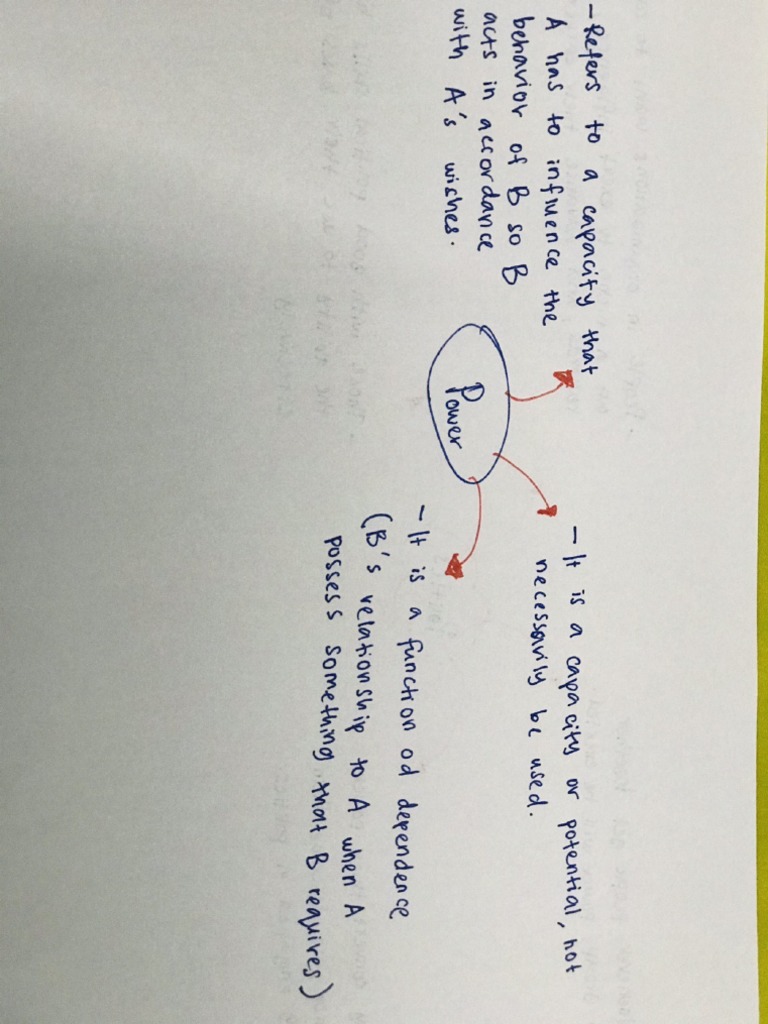 - Refers to a capacity that
A has to influence the
behavior of B so B
acts in accordance
with A's wishes.
Power
- It is a capacity or potential, not
necessarily be used.
- It is a function od dependence
(B's relationship to A when A
possess something that B requires)